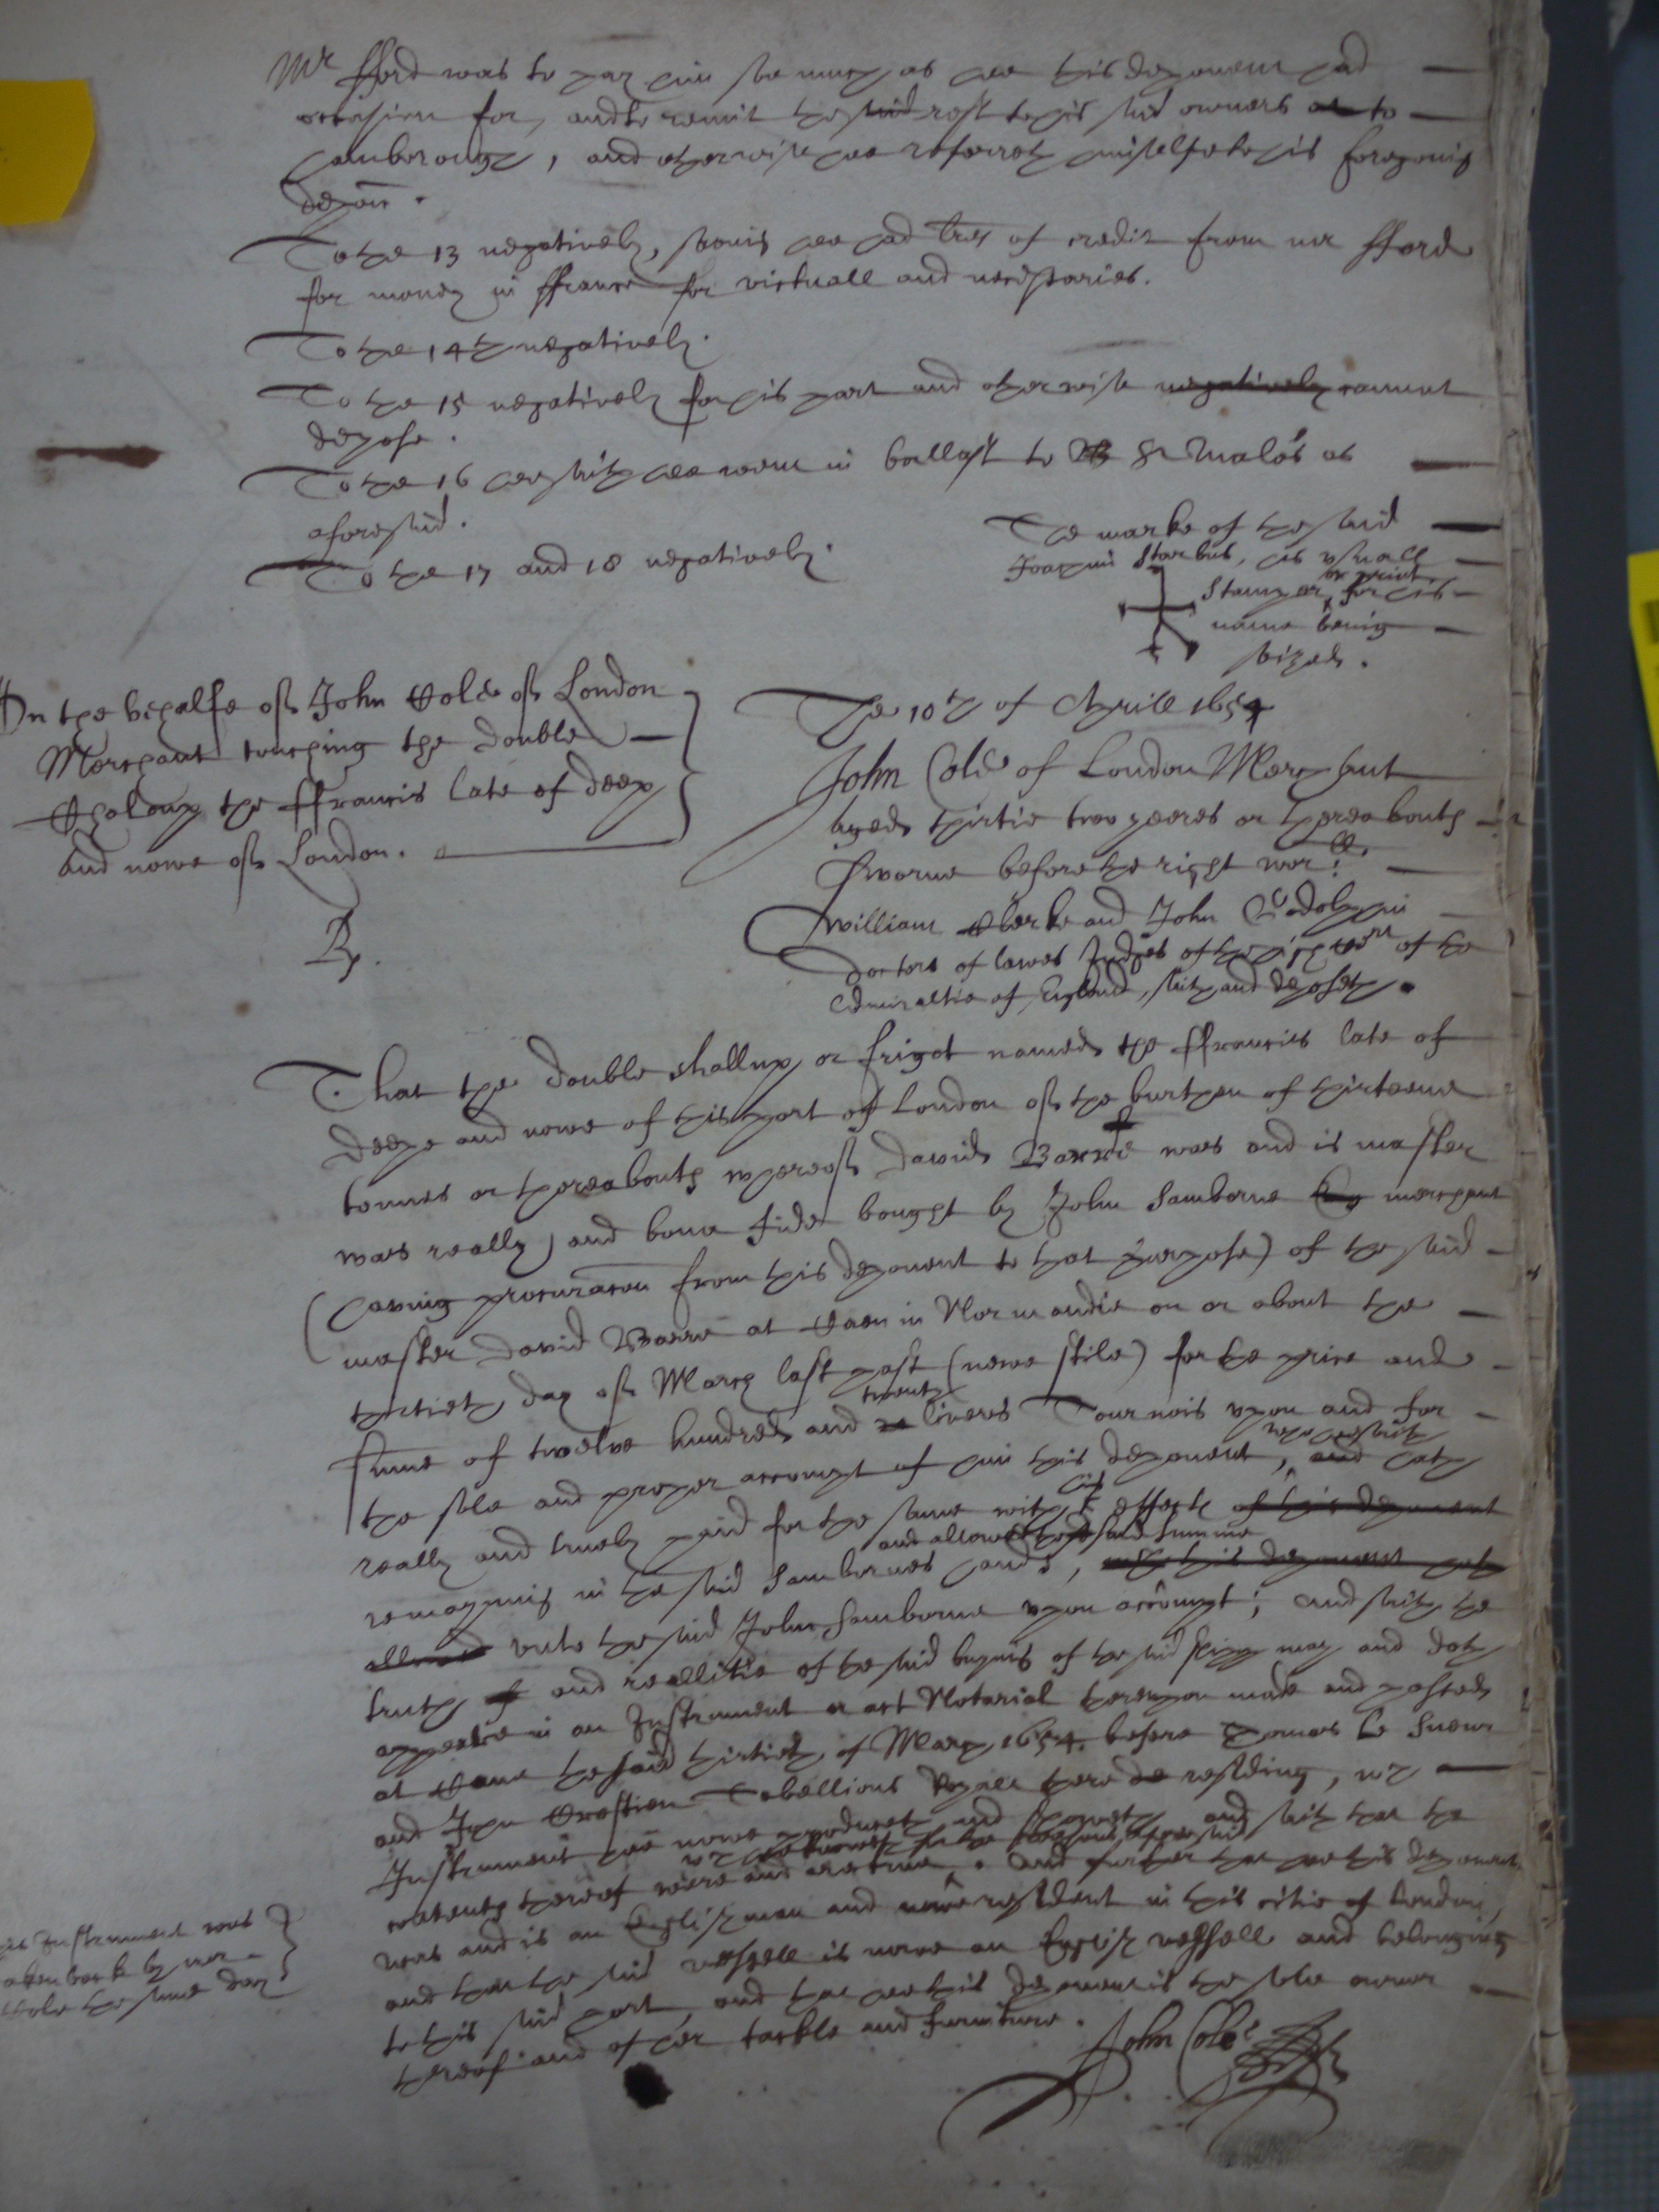 Mr fford was to pay him soe much as hee this deponent had
occasion for, and to remit the said rest to his said owners at to
hamborough, and otherwise hee referreth himselfe to his foregoing
depon.
To the 13 negatively, saving hee had lres of credit from mr fford
for money in ffrance for victuall and necessaries.
To the 14th negatively.
To the 15 negatively for his part and otherwise negatively cannot
depose.
To the 16 hee saith hee went in ballast to B St Malo's as
aforesaid.
To the 17 and 18 negatively.
The marke of the said
Joachim Starbus, his usuall
stamp or print for his
name being
seized.
On the behalfe of John Cole of London
Merchant touching the double
Shaloup the ffrancis late of deep
and nowe of London.
The 10th of Aprill 1654
John Cole of London Merchant
aged thirtie two yeeres or thereabouts
sworne before the right worll
William Clerke and John Godolphin
doctors of lawes Judges of the high Court of the
Admiraltie of England, saith and deposeth.
Rp.
That the double shallup or frigot named the ffrancis late of
deepe and nowe of this port of London of the burthen of thirteene
tonnes or thereabouts whereof david Barre was and is master
was really and bona fide bought by John Samborne merchant
(having procuracon from this deponent to that purpose) of the said
master david Barre at Caen in Normandie on or about the
thirtieth day of March last past (newe stile) for the price and
summe of twelve hundred and twenty livers Tournois upon and for
the sole and proper accompt of him this deponent, and who saith hath
really and truely paid for the same with his effects of this deponent
remayning in the said Sambornes hands, and allowed the said summe with this deponent hath
allowed unto the said John Samborne upon accompt; and saith the
truth and reallitie of the said buying of the said shipp may and doth
appeare in an Instrument or act Notarial thereupon made and passed
at Caen the said thirtieth of March 1654. before Thomas Le Sueur
and Jean Crestien Tabellions Royall there residing, wch
Instrument hee nowe produceth and sheweth, and saith that the
contents thereof were and are true. And further that hee this deponent
was and is an Englishman and nowe resident in this citie of London,
and that the said vessell is nowe an English vessell and belonging
to this said port, and that hee this deponent is the sole owner
thereof and of her tackle and furniture.
John Cole
Instrument was
taken back by mr
Cole the same day